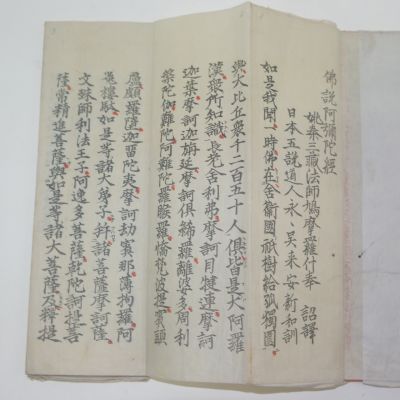 佛説阿彌陀經
姚秦三藏法師鳩摩羅什奉 詔譯
日本五説道人永 吴来安新和訓
如是我聞一時佛在舍衛國祇樹給孤獨園與
衆大比丘衆千二百五十人俱皆是大阿羅
漢衆所知識長老舍利弗摩訶目犍連摩訶
迦葉摩訶迦旃延摩訶俱絺羅離婆多周利
槃陀伽難陀阿難陀羅睺羅憍梵波提賓頭
盧頗羅墮迦留陀夷摩訶劫賓那薄拘羅阿
㝹樓馱如是等諸大弟子并諸菩薩摩訶薩
文殊師利法王子阿逸多菩薩乾陀訶提菩
薩常精進菩薩與如是等諸大菩薩及釋提